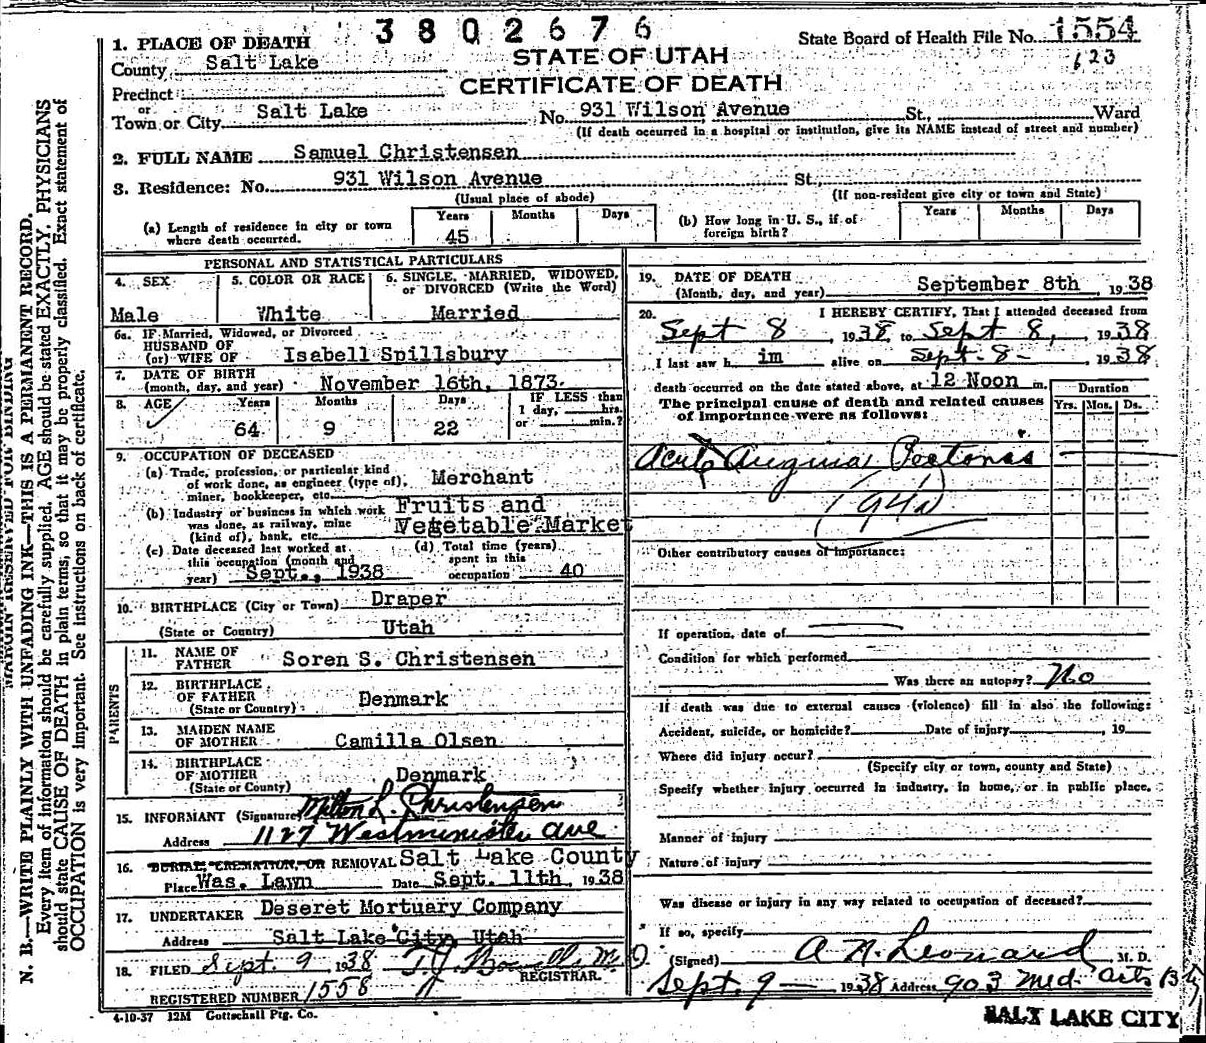 3802676
State Board of Health File No. 1554
123
STATE OF UTAH
CERTIFICATE OF DEATH
1. PLACE OF DEATH
County Salt Lake
Precinct
or
Town or City Salt Lake No. 931 Wilson Avenue St., Ward
(If death occurred in a hospital or institution, give its NAME instead of street and number)
2. FULL NAME Samuel Christensen
3. Residence: No. 931 Wilson Avenue St.,
(Usual place of abode) (If non-resident give city or town and State)
(a) Length of residence in city or town where death occurred. Years 45 Months Days
(b) How long in U. S., if of foreign birth? Years Months Days
PERSONAL AND STATISTICAL PARTICULARS
4. SEX 5. COLOR OR RACE 6. SINGLE, MARRIED, WIDOWED, or DIVORCED (Write the Word)
Male White Married
6a. IF Married, Widowed, or Divorced
HUSBAND OF
(or) WIFE OF Isabell Spillsbury
7. DATE OF BIRTH
(month, day, and year) November 16th, 1873
8. AGE Years Months Days IF LESS than 1 day, hrs. or min.?
64 9 22
9. OCCUPATION OF DECEASED
(a) Trade, profession, or particular kind of work done, as engineer (type of), miner, bookkeeper, etc. Merchant
(b) Industry or business in which work was done, as railway, mine (kind of), bank, etc. Fruits and Vegetable Market
(c) Date deceased last worked at this occupation (month and year) Sept., 1938
(d) Total time (years) spent in this occupation 40
10. BIRTHPLACE (City or Town) Draper
(State or Country) Utah
PARENTS
11. NAME OF FATHER Soren S. Christensen
12. BIRTHPLACE OF FATHER (State or Country) Denmark
13. MAIDEN NAME OF MOTHER Camilla Olsen
14. BIRTHPLACE OF MOTHER (State or County) Denmark
15. INFORMANT (Signature) Milton L. Christensen
Address 1127 Westminister Ave
16. BURIAL, CREMATION, OR REMOVAL Salt Lake County
Place Was. Lawn Date Sept. 11th, 1938
17. UNDERTAKER Deseret Mortuary Company
Address Salt Lake City, Utah
18. FILED Sept. 9 1938 T.J. M.D. REGISTRAR.
REGISTERED NUMBER 1558
4-10-37 12M Gottschall Ptg. Co.
19. DATE OF DEATH
(Month, day, and year) September 8th, 1938
20. I HEREBY CERTIFY, That I attended deceased from
Sept 8, 1938, to Sept 8, 1938
I last saw h im alive on Sept. 8 - 1938
death occurred on the date stated above, at 12 Noon m.
The principal cause of death and related causes of importance were as follows:
Duration
Yrs. Mos. Ds.
Acute Angina Pectoris
94a
Other contributory causes of importance:
If operation, date of
Condition for which performed
Was there an autopsy? No
If death was due to external causes (violence) fill in also the following:
Accident, suicide, or homicide? Date of injury , 19
Where did injury occur?
(Specify city or town, county and State)
Specify whether injury occurred in industry, in home, or in public place.
Manner of injury
Nature of injury
Was disease or injury in any way related to occupation of deceased?
If so, specify
(Signed) A N. Leonard M. D.
Sept. 9 - 1938 Address 903 Med. Arts Bldg
SALT LAKE CITY
MARGIN RESERVED FOR BINDING
N. B.—WRITE PLAINLY WITH UNFADING INK—THIS IS A PERMANENT RECORD.
Every item of information should be carefully supplied. AGE should be stated EXACTLY. PHYSICIANS
should state CAUSE OF DEATH in plain terms, so that it may be properly classified. Exact statement of
OCCUPATION is very important. See instructions on back of certificate.